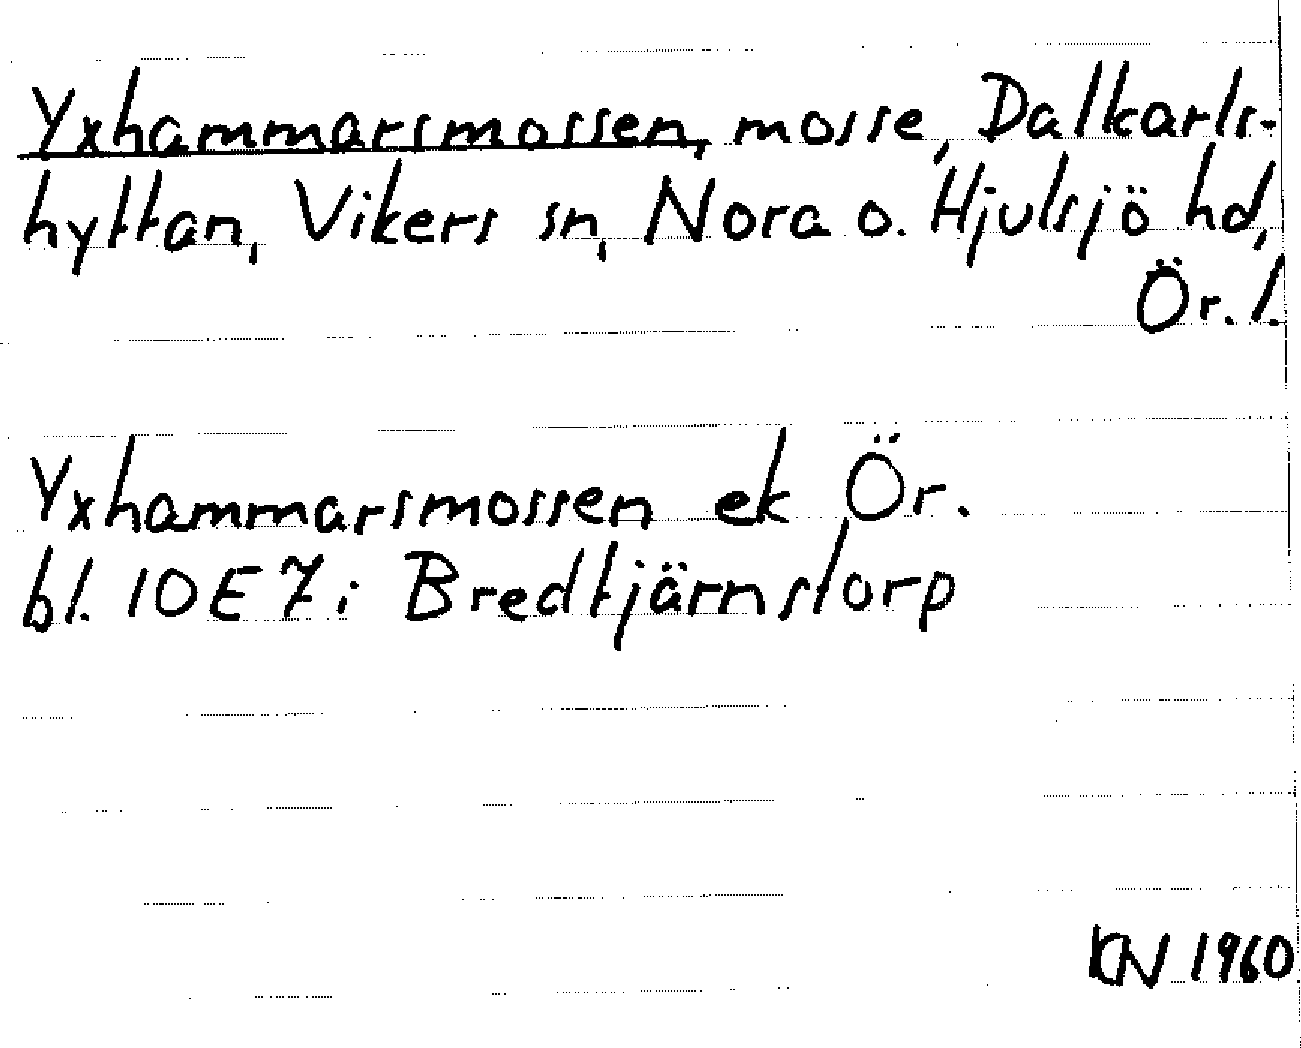 Yxhammarsmossen, mosse, Dalkarls-
hyttan, Vikers sn, Nora o. Hjulsjö hd,
Ör. l.
Yxhammarsmossen ek Ör.
bl. 10E7i Bredtjärnstorp
KN 1960